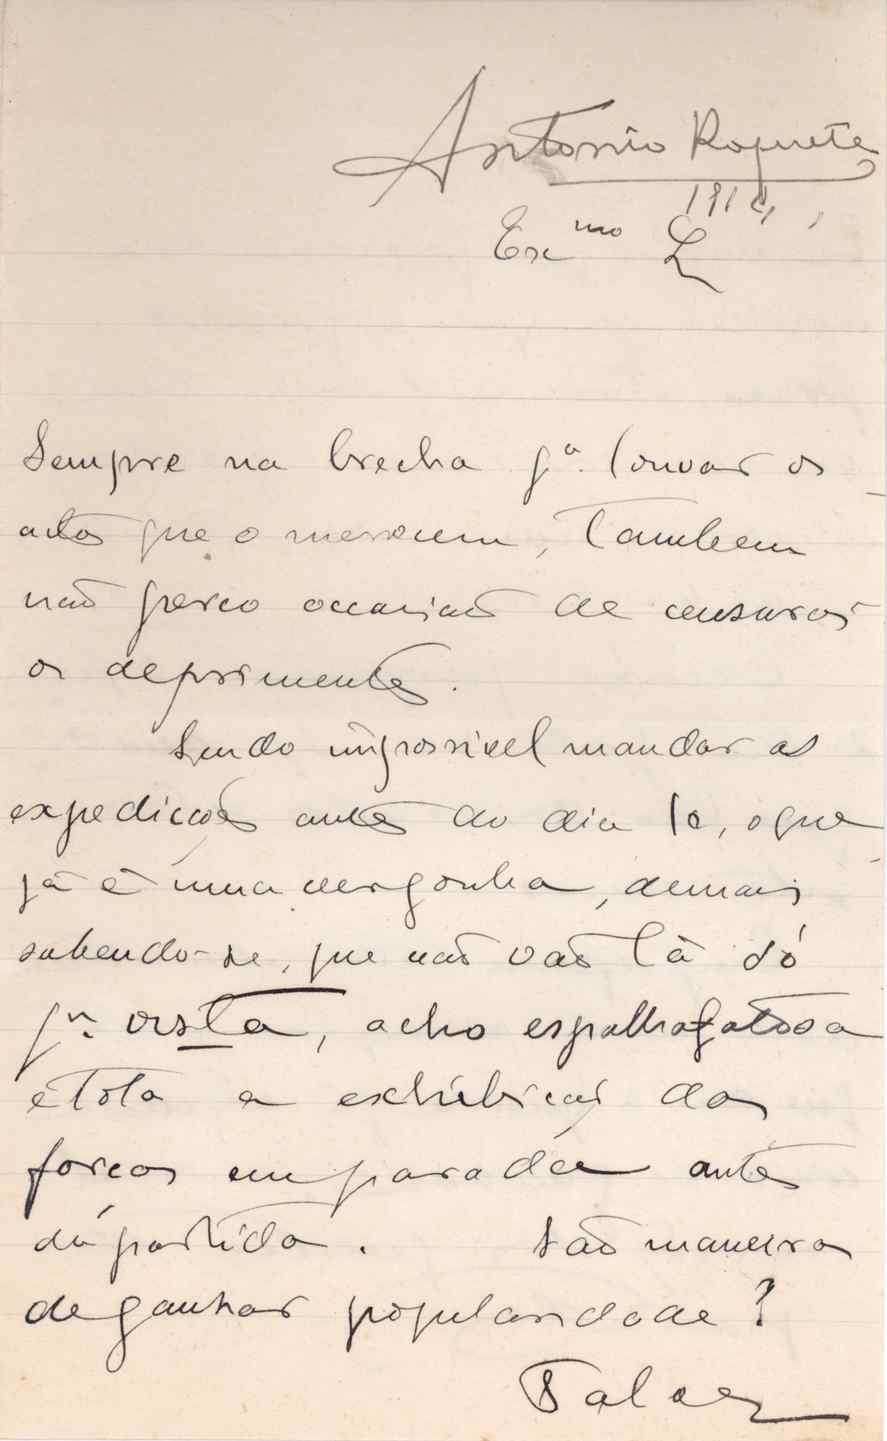 Antonio Roquete
1914
Exmo Sr
Sempre na brecha pa. louvar os
actos que o merecem, tambem
não perco occasião de censurar
os deprimentes.
Sendo impossivel mandar as
expedicções antes do dia 10, o que
já é uma vergonha, demais
sabendo-se, que não vão lá só
pa. vista, acho espalhafatosa
e tola a exhibicão das
forcas em parada antes
da partida. São maneiras
de ganhar popularidade?
Talvez